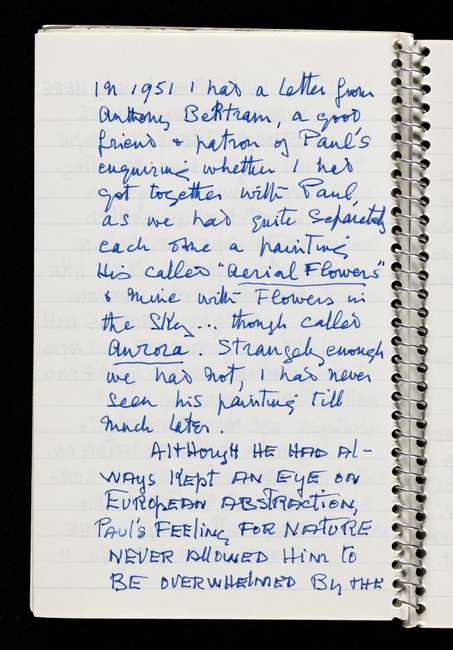 In 1951 I had a letter from
Anthony Bertram, a good
friend & patron of Paul's
enquiring whether I had
got together with Paul,
as we had quite separately
each done a painting
His called "Aerial Flowers"
& mine with Flowers in
the Sky... though called
Aurora. Strangely enough
we had not, I had never
seen his painting till
much later.
ALTHOUGH HE HAD AL-
WAYS KEPT AN EYE ON
EUROPEAN ABSTRACTION,
PAUL'S FEELING FOR NATURE
NEVER ALLOWED HIM TO
BE OVERWHELMED BY THE